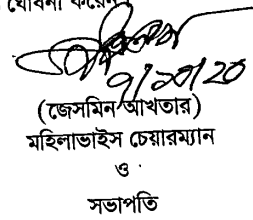 ঘোষনা করেন
৭/১০/২০
(জেসমিন আখতার)
মহিলাভাইস চেয়ারম্যান
ও
সভাপতি